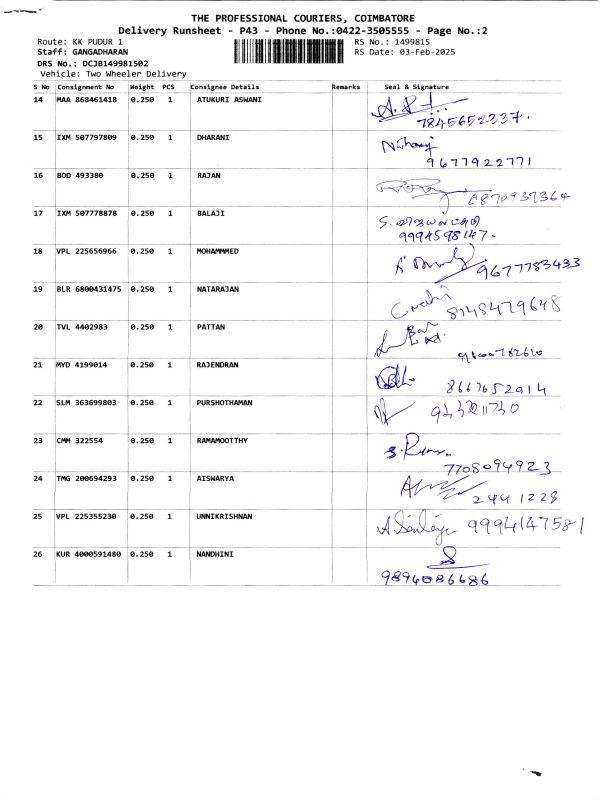 THE PROFESSIONAL COURIERS, COIMBATORE
Delivery Runsheet - P43 - Phone No.:0422-3505555 - Page No.:2
Route: KK PUDUR 1 RS No.: 1499815
Staff: GANGADHARAN RS Date: 03-Feb-2025
DRS No.: DCJB149981502
Vehicle: Two Wheeler Delivery
S No Consignment No Weight PCS Consignee Details Remarks Seal & Signature
14 MAA 868461418 0.250 1 ATUKURI ASWANI
7845652337.
15 IXM 507797809 0.250 1 DHARANI
9677922771
16 BOD 493380 0.250 1 RAJAN
17 IXM 507778878 0.250 1 BALAJI
S. விஜயலட்சுமி
9994598147.
18 VPL 225656966 0.250 1 MOHAMMMED
9677783433
19 BLR 6800431475 0.250 1 NATARAJAN
8148479648
20 TVL 4402983 0.250 1 PATTAN
21 MYD 4199014 0.250 1 RAJENDRAN
8667652914
22 SLM 363699803 0.250 1 PURSHOTHAMAN
23 CMM 322554 0.250 1 RAMAMOOTTHY
7708094923
24 TMG 200694293 0.250 1 AISWARYA
2441228
25 VPL 225355230 0.250 1 UNNIKRISHNAN
9994147581
26 KUR 4000591480 0.250 1 NANDHINI
9894086686